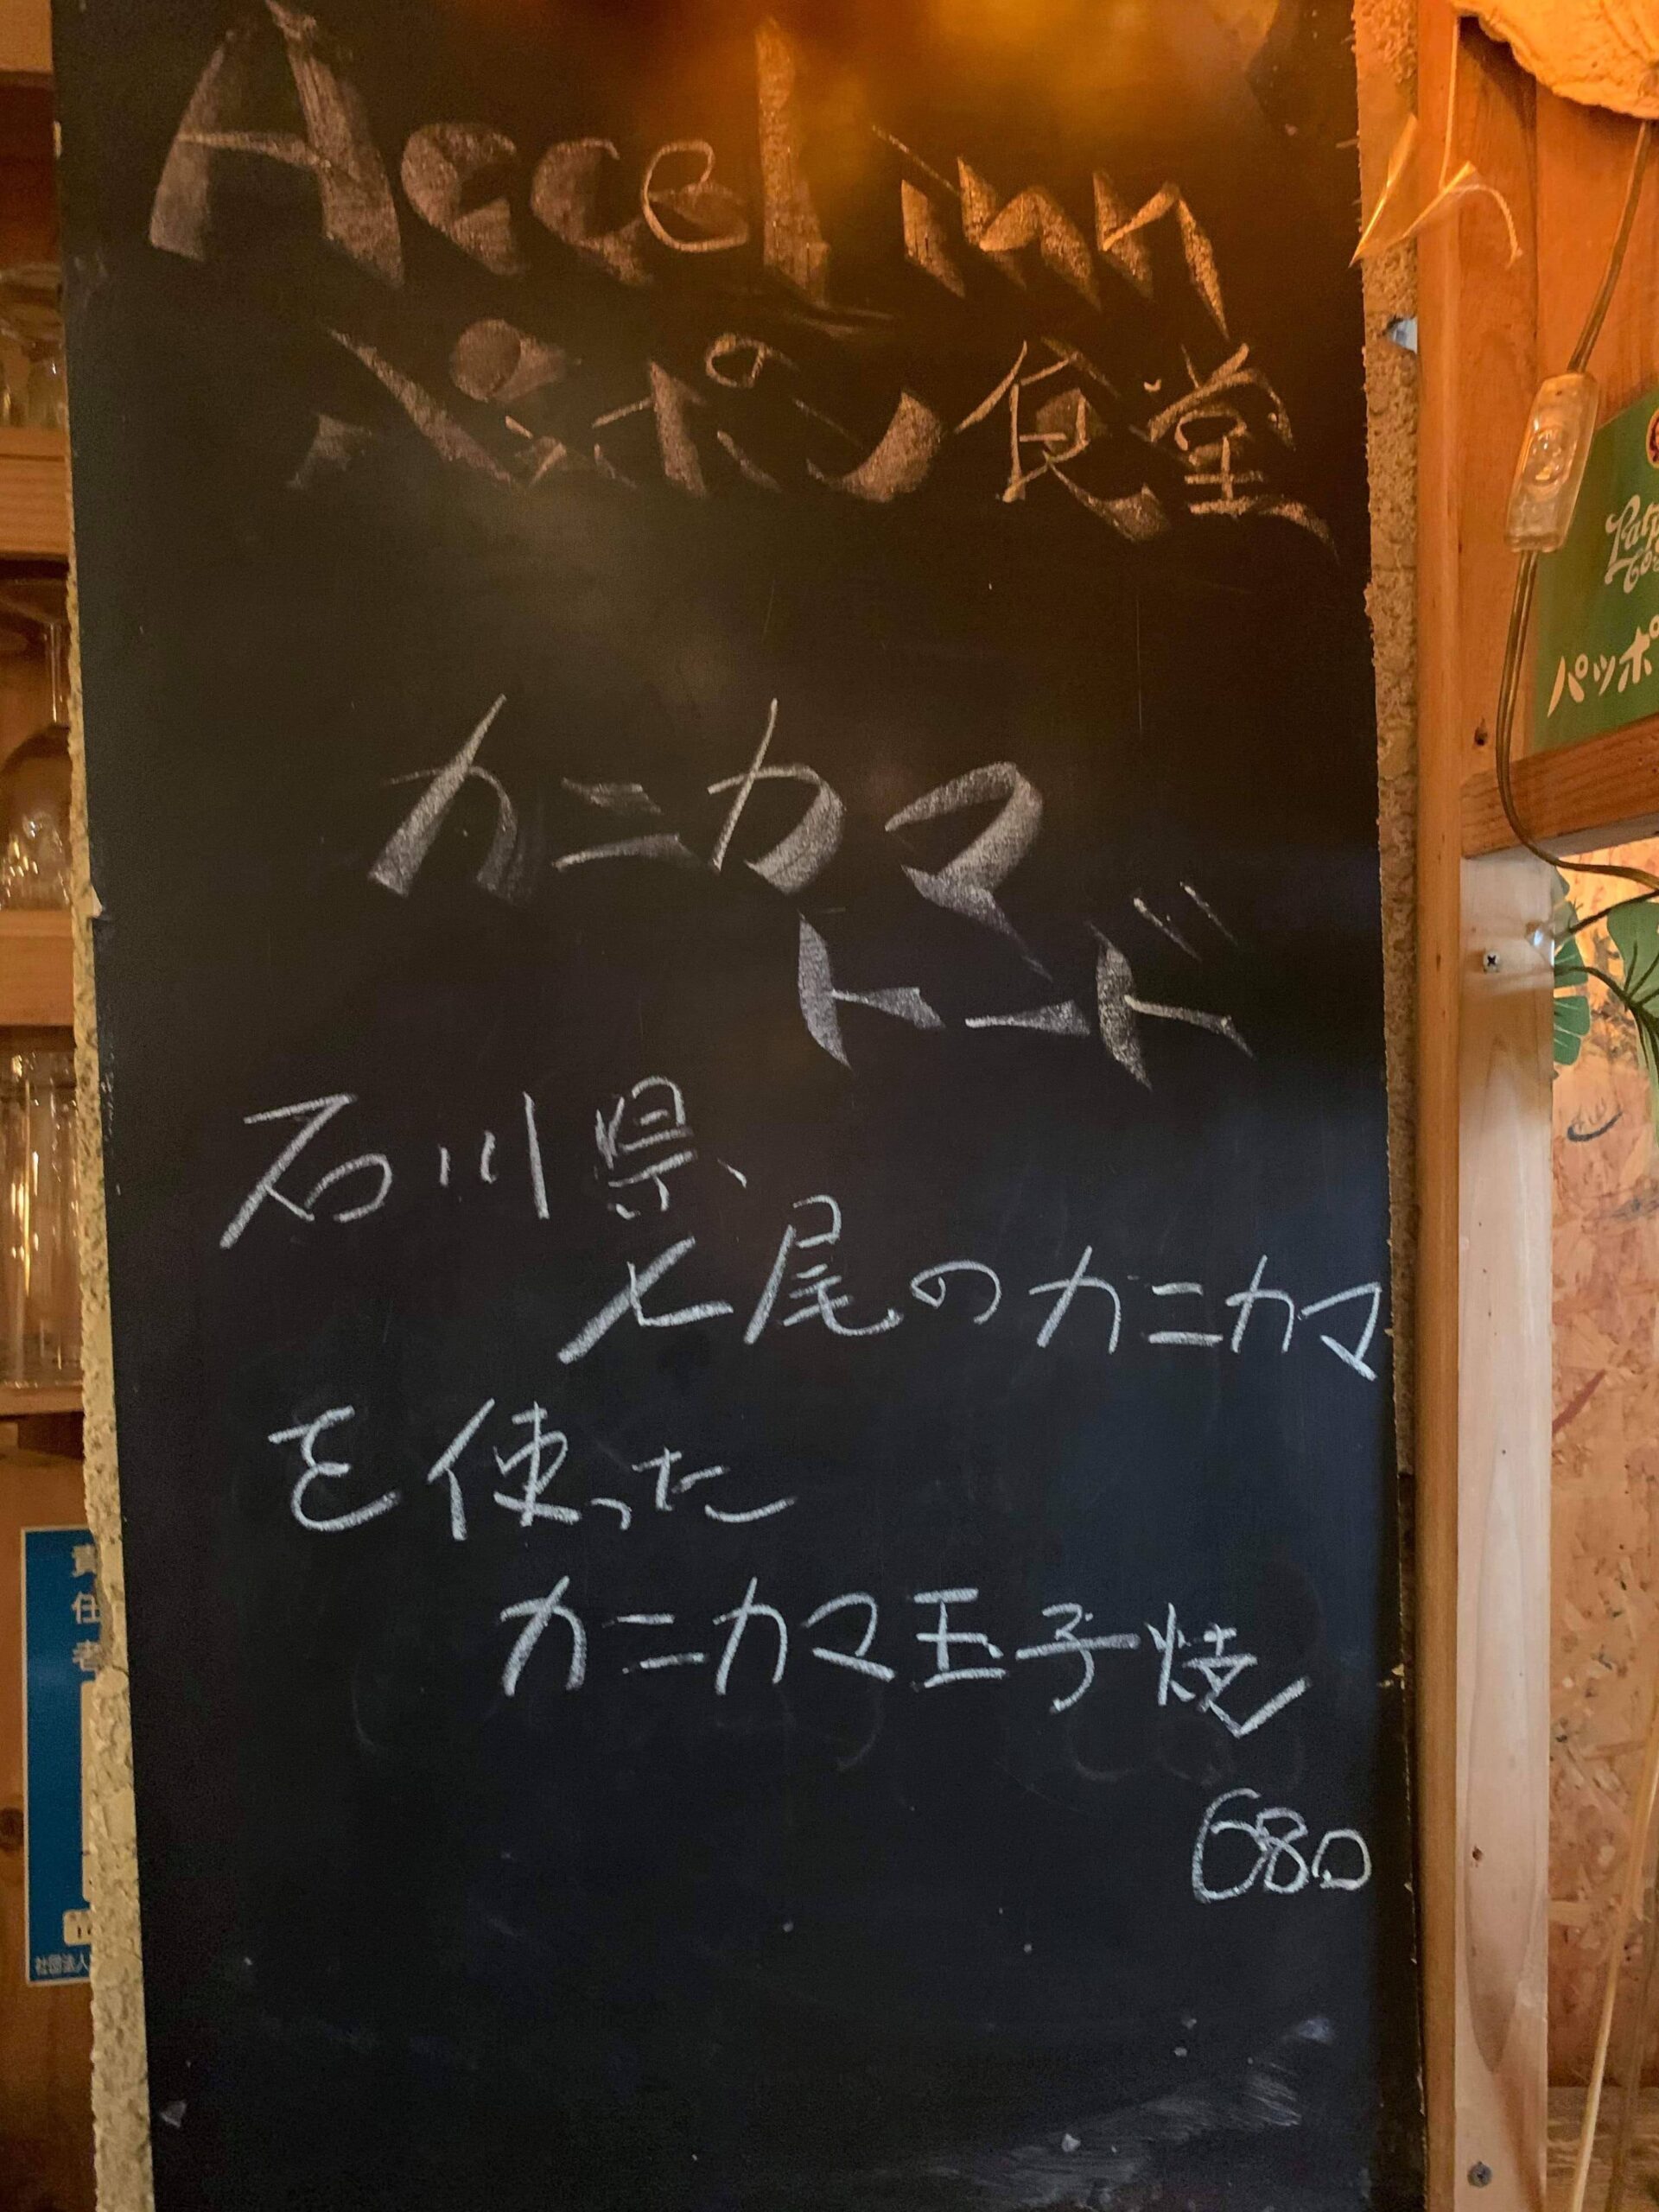 Accel inn
パッポン食堂
カニカマ
トード
石川県、
七尾のカニカマ
を使った
カニカマ玉子焼
680
パッポ
責任者
社団法人